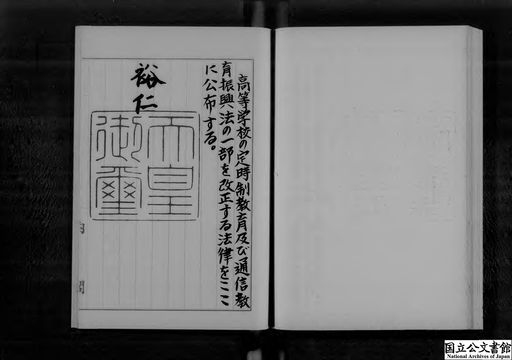 高等学校の定時制教育及び通信教
育振興法の一部を改正する法律をここ
に公布する。
裕仁
天皇
御璽
内
閣
国立公文書館
National Archives of Japan